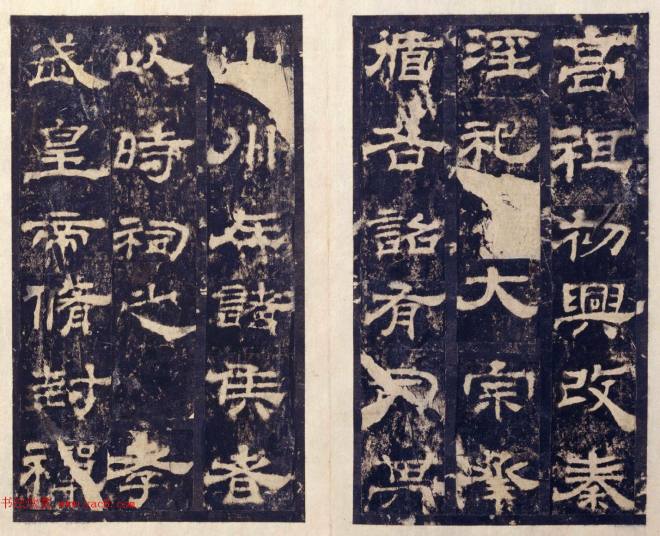 高祖初興改秦
淫祀大宗承
循各詔有司其
山川在諸侯者
以時祠之孝
武皇帝脩封禪
书法欣赏 www.yac8.com